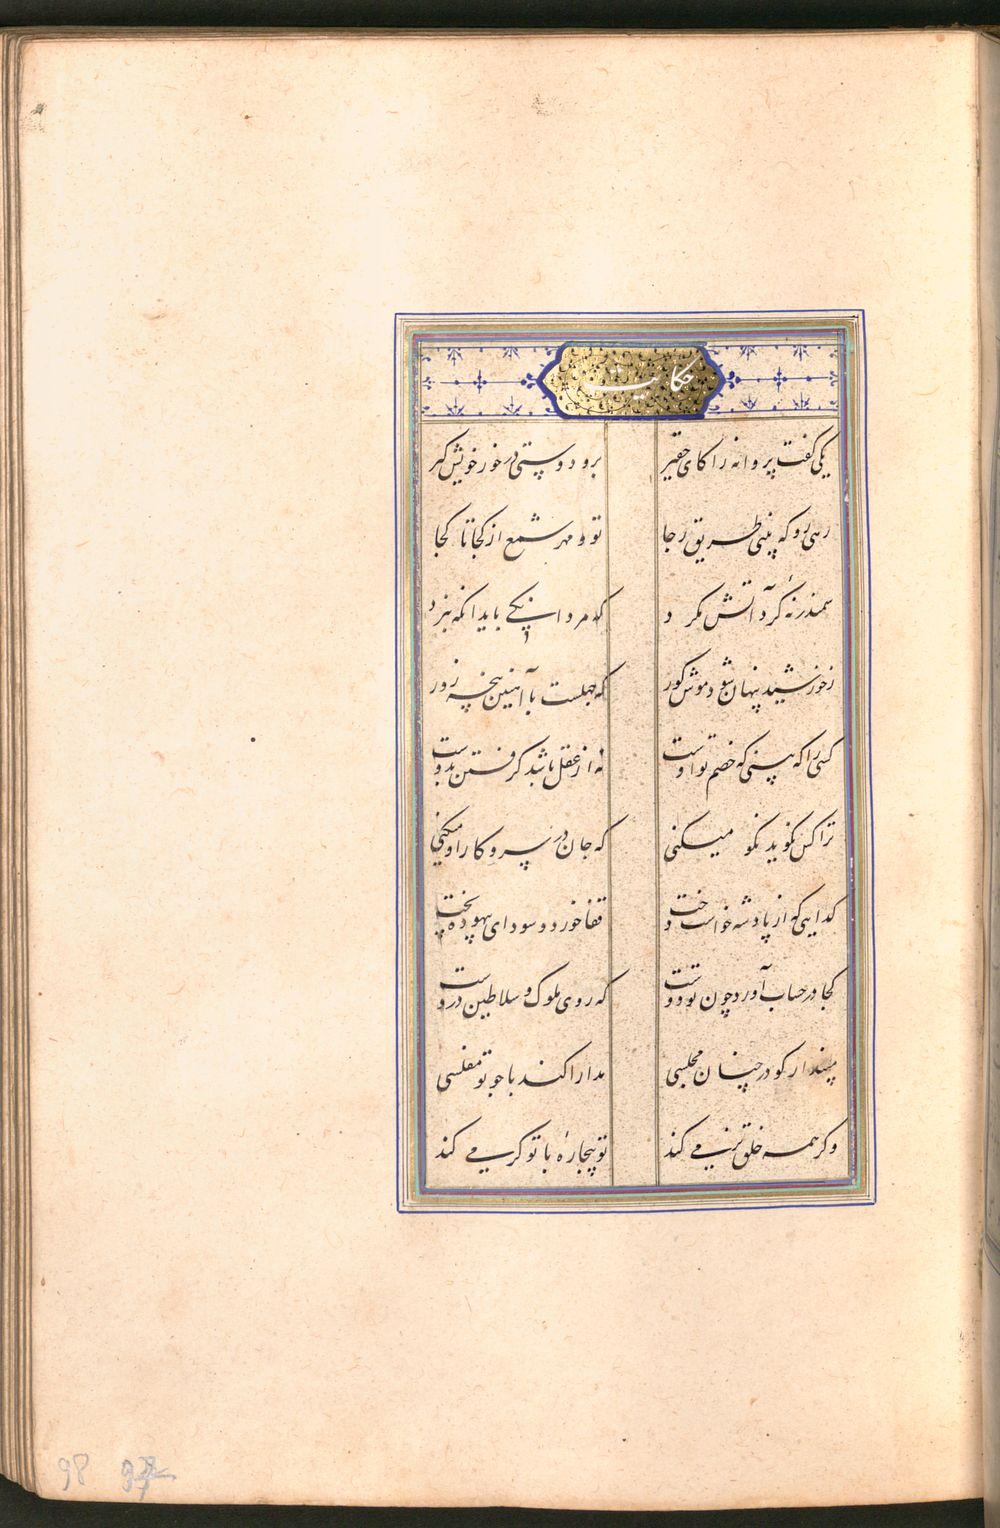 حکایت
یکی گفت پروانه را کای حقیر برو دوستی در خور خویش گیر
رهی رو که بینی طریق رجا تو و مهر شمع از کجا تا کجا
سمندر نهٔ گرد آتش مگرد که مردانگی باید آنگه نبرد
ز خورشید پنهان شود موش کور که جهلست با آهنین پنجه زور
کسی را که بینی که خصم تو اوست نه از عقل باشد گرفتن بدوست
ترا کس نگوید نکو میکنی که جان در سر و کار او میکنی
گدایی که از پادشه خواست دخت قفا خورد و سودای بیهوده پخت
کجا در حساب آورد چون تو دوست که روی ملوک و سلاطین دروست
مپندار کو در چنان مجلسی مدارا کند با چو تو مفلسی
وگر با همه خلق نرمی کند تو بیچارهٔ با تو گرمی کند
98 97